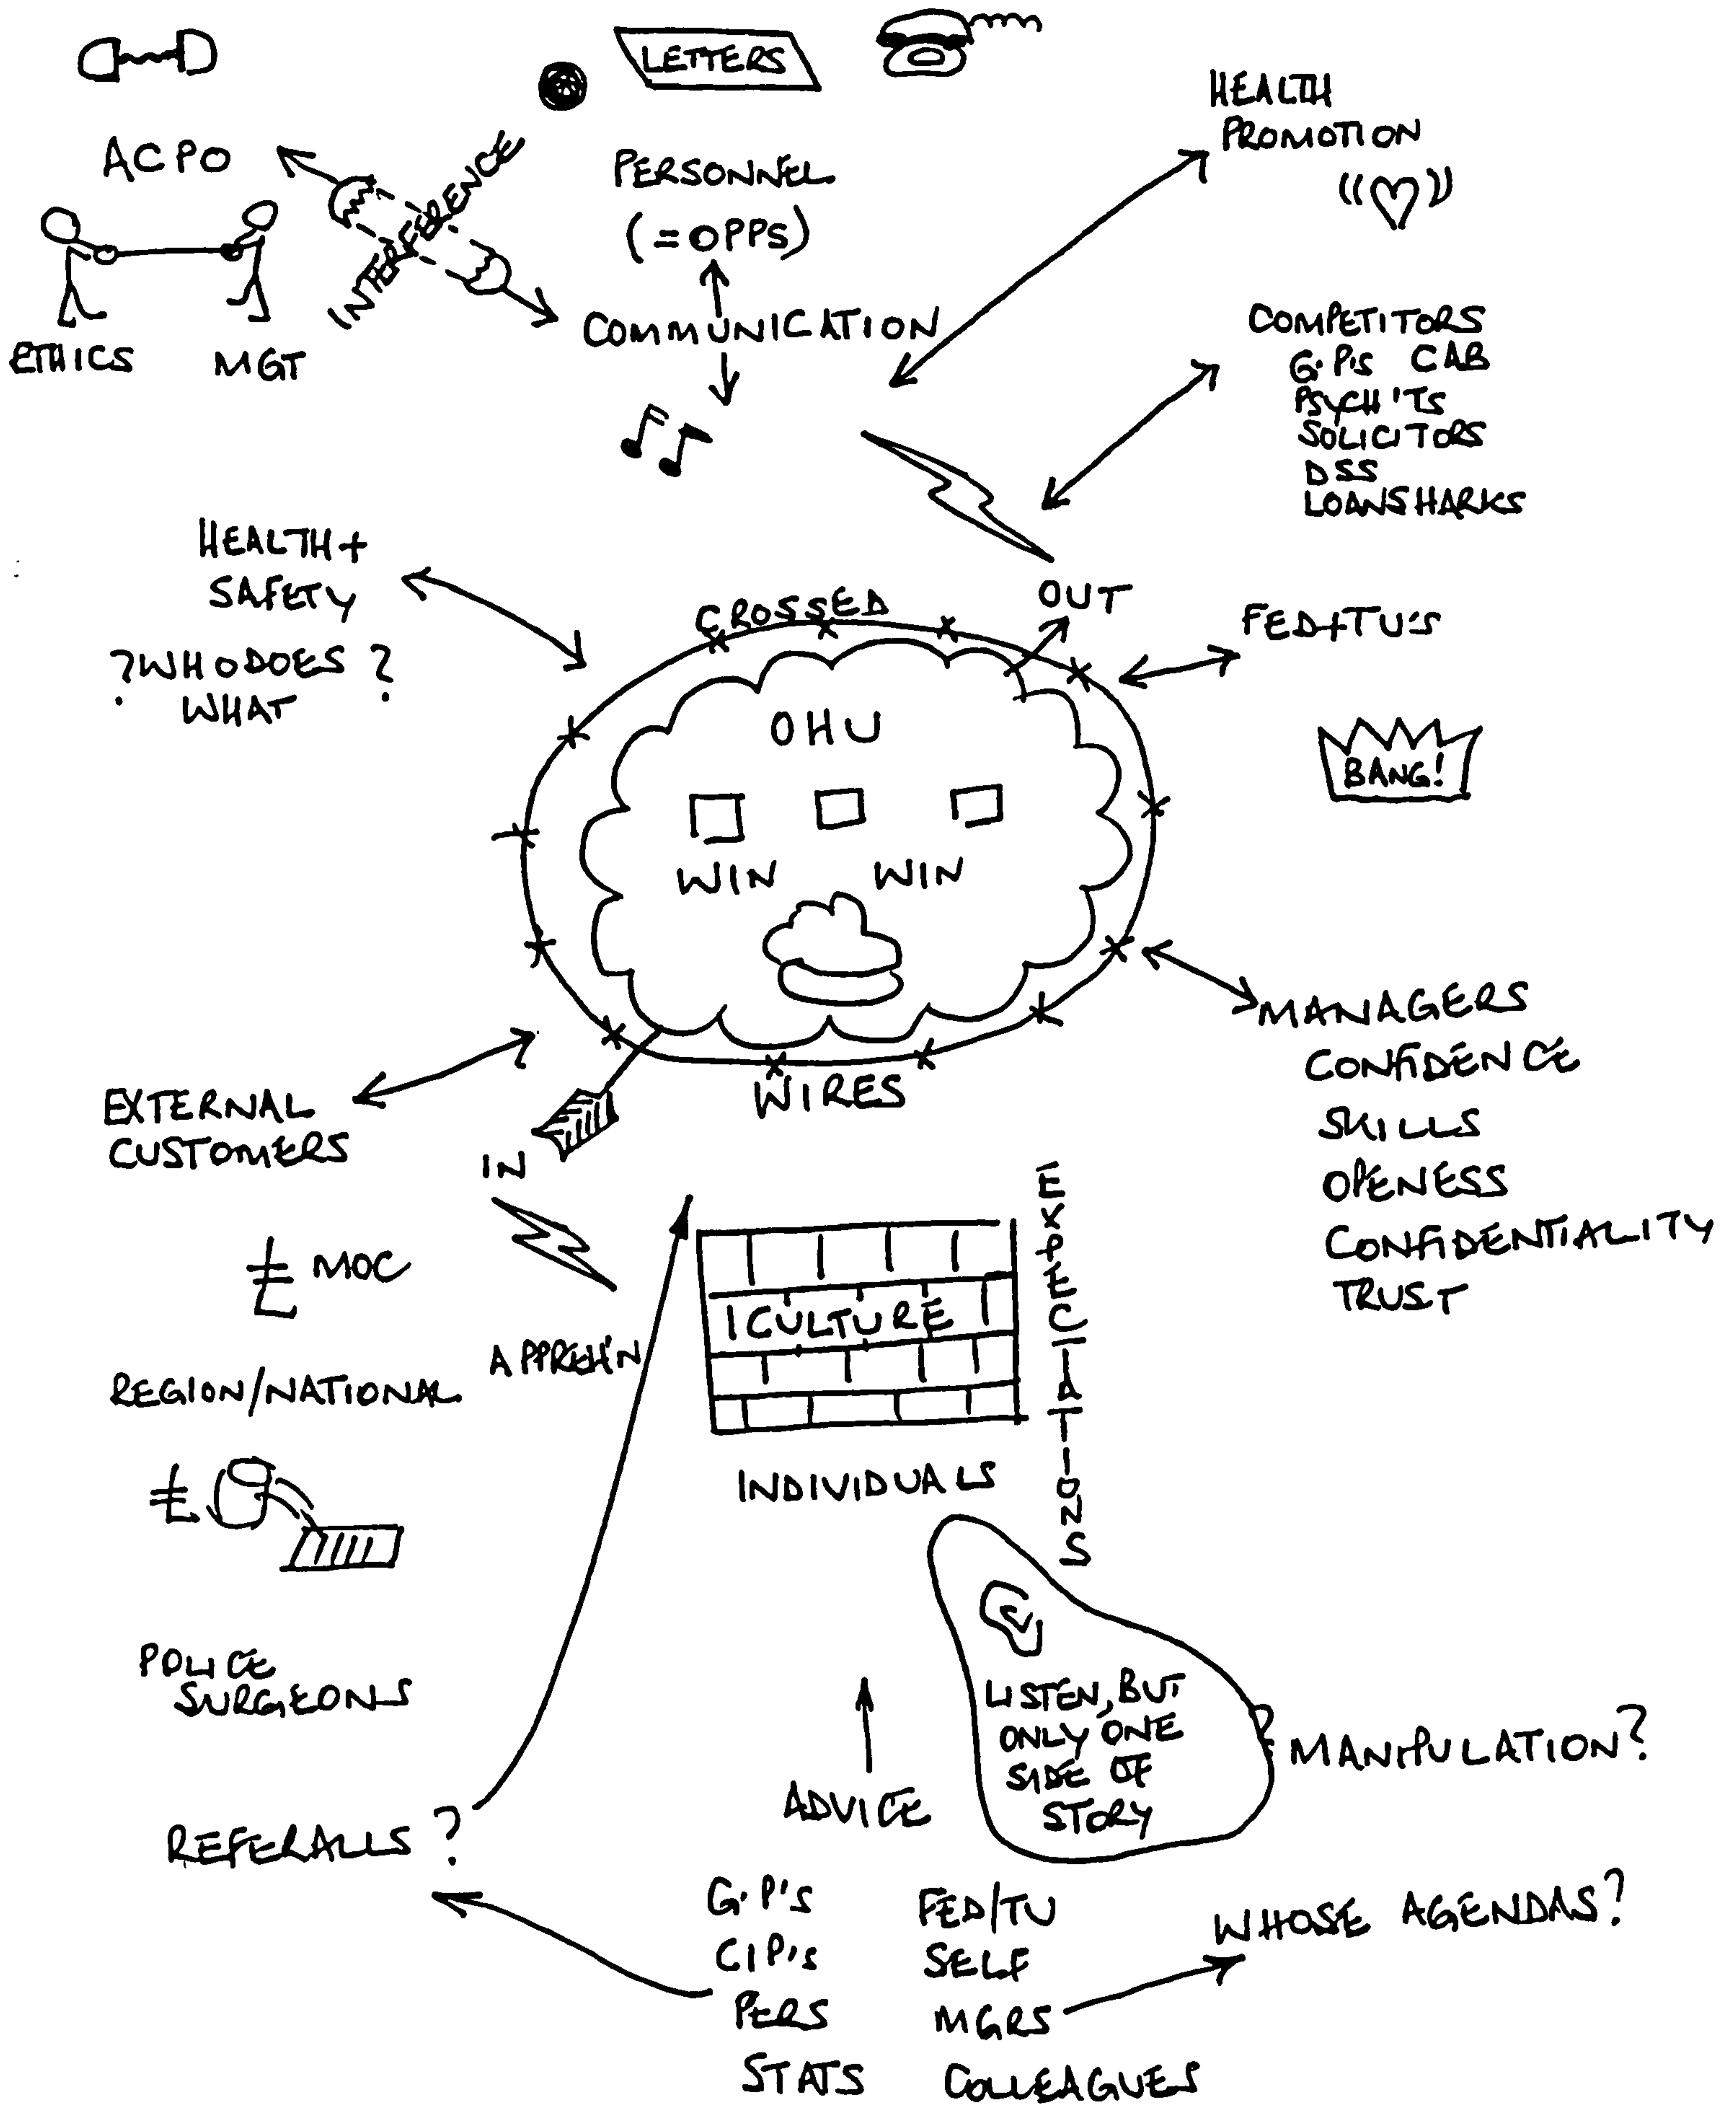 LETTERS
HEALTH
PROMOTION
ACPO
INTERFERENCE
PERSONNEL
(=OPPS)
ETHICS
MGT
COMMUNICATION
COMPETITORS
G.P's CAB
PSYCH'TS
SOLICITORS
DSS
LOANSHARKS
HEALTH +
SAFETY
? WHO DOES ?
WHAT
CROSSED
OUT
FED+TU'S
OHU
BANG!
WIN WIN
WIRES
MANAGERS
CONFIDENCE
SKILLS
OPENESS
CONFIDENTIALITY
TRUST
EXTERNAL
CUSTOMERS
IN
£ MOC
APPREH'N
CULTURE
EXPECTATIONS
REGION/NATIONAL
£
INDIVIDUALS
POLICE
SURGEONS
LISTEN, BUT
ONLY ONE
SIDE OF
STORY
? MANIPULATION?
ADVICE
REFERALLS ?
G.P'S
CIP's
PERS
STATS
FED/TU
SELF
MGRS
COLLEAGUES
WHOSE AGENDAS?